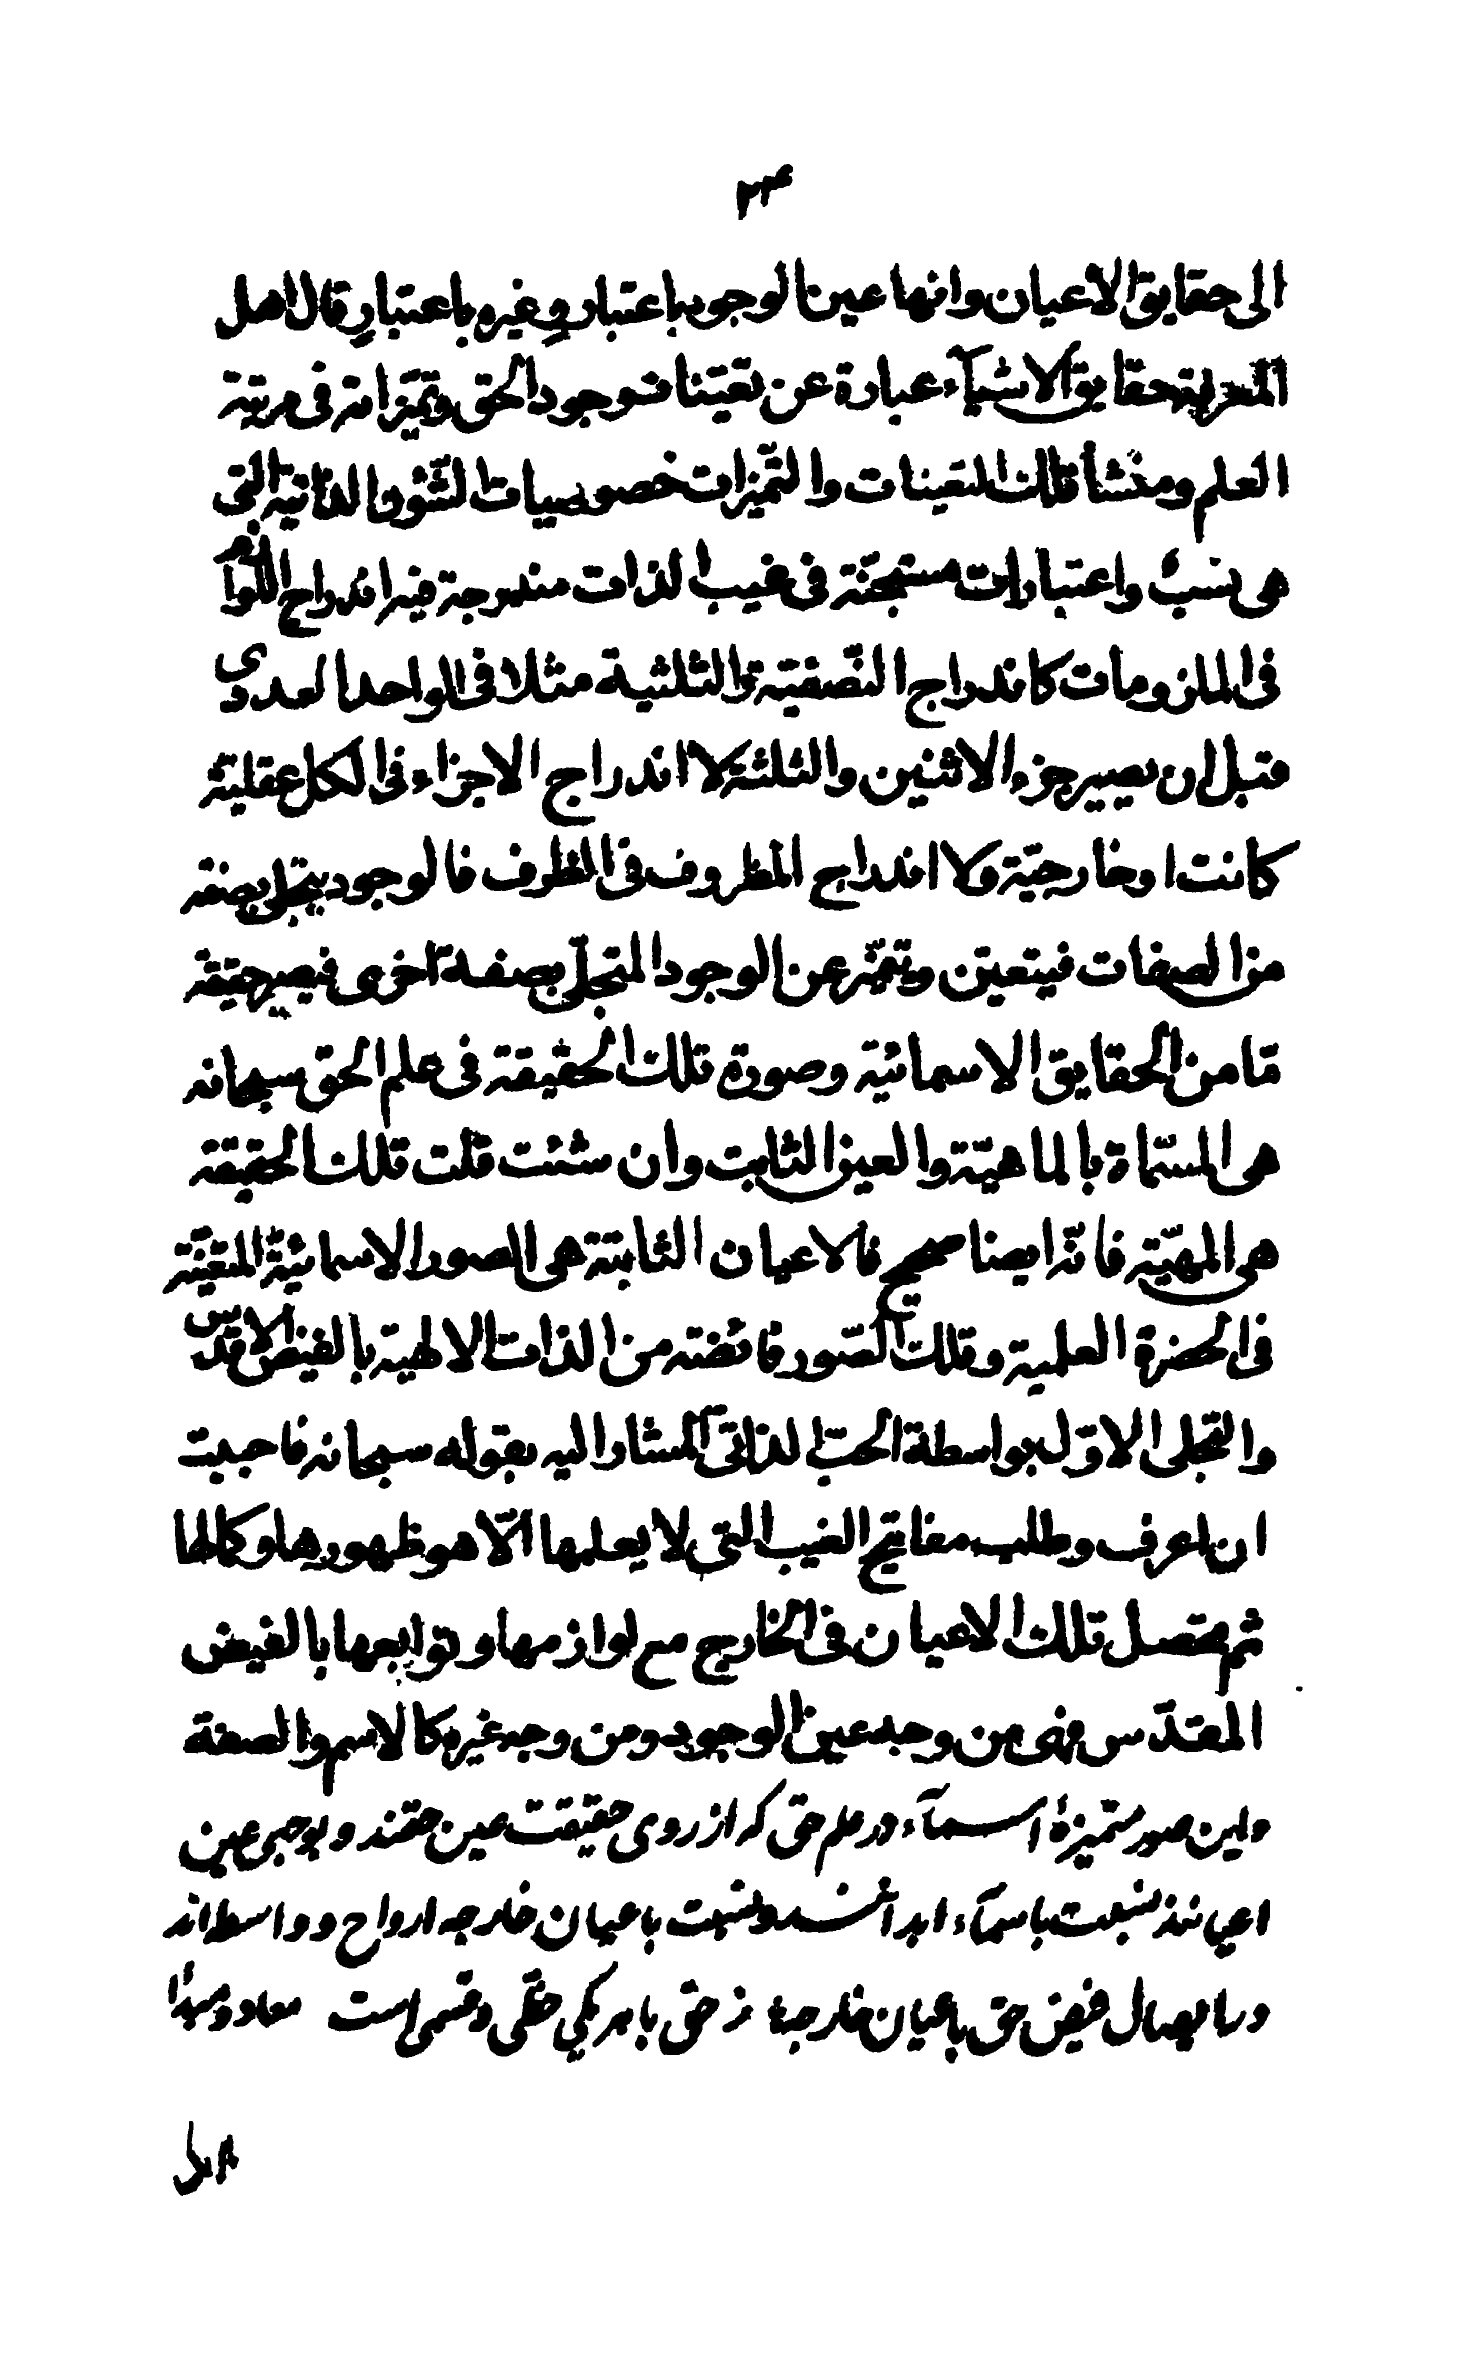 ۲۳۴
الى حقايق الاعيان وانها عين الوجود باعتبار وغيره باعتبار قال اهل
المعرفة حقايق الاشيآء عبارة عن تعيّنات وجود الحق وتميّزاته فى مرتبة
العلم ومنشأ تلك التعينات والتّميزات خصوصيات الشّئون الذاتية التى
هى نسب واعتبارات مستجنّة فى غيب الذات مندرجة فيه اندراج اللّوازم
فى الملزومات كاندراج النّصفيّة والثلثية مثلا فى الواحد العددى
قبل ان يصير جزء الاثنين والثلثة لا اندراج الاجزاء فى الكل عقليّة
كانت او خارجيّة ولا اندراج المظروف فى الظرف فالوجود يتجلى بصفة
من الصفات فيتعيّن ويتميّز عن الوجود المتجلّى بصفة اخرى فيصير حقيقة
مّا من الحقايق الاسمائيّة وصورة تلك الحقيقة فى علم الحق سبحانه
هى المسمّاة بالماهيّة والعين الثابت وان شئت قلت تلك الحقيقة
هى المهيّة فانّه ايضا صحيح فالاعيان الثابتة هى الصور الاسمائيّة المتعيّنة
فى الحضرة العلمية وتلك الصّور فائضة من الذات الالهية بالفيض الاقدس
والتجلى الاوّل بواسطة الحبّ الذاتى المشار اليه بقوله سبحانه فاحببت
ان اعرف وطلب مفاتيح الغيب التى لا يعلمها الّا هو ظهورها وكمالها
ثم يحصل تلك الاعيان فى الخارج مع لوازمها وتوابعها بالفيض
المقدّس فهى من وجه عين الوجود ومن وجه غيره كالاسم والصفة
واين صور متميزهٔ اسمآء در علم حق كه از روى حقيقت عين حقند و بوجهى عين
اعيانند نسبت باسمآء ابدانند ونسبت باعيان خارجه ارواح و واسطه‌اند
در ايصال فيض حق باعيان خارجهٔ ز حق با هر يكي حظّى و قسمى است معاد و مبدأ